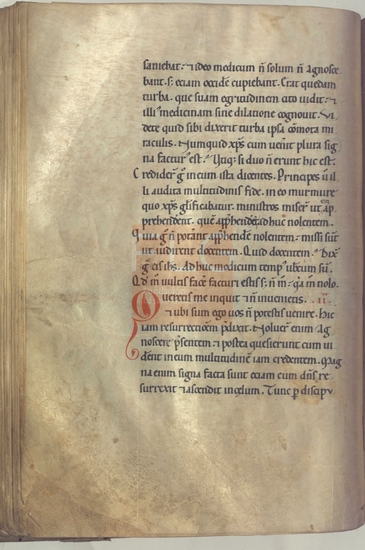 saniebat. & ideo medicum n̄ solum n̄ agnosce
bant. s; eciam occidē cupiebant. Erat quedam
turba. que suam egritudinem cito uidit. &
illi' medicinam sine dilatione cognouit. Vi
dete quid sibi dixerit turba ipsa cōmota mi
raculis. Numquid xp̄s cum uen̄it plura sig
na factur' est. Utiq; si duo n̄ erunt hic est.
Credider̄t g° in eum ista dicentes. Principes ū il
li audita multitudinis fide. in eo murmure
quo xp̄s glificabatur. ministros miser̄t ut app̄
prehenderent. quē apphenderēt adhuc nolentem.
Quia g° n̄ poterant apphendē nolentem. missi sūt
ut audirent docentem. Quid docentem. Dix̄
g° eis ihs. Adhuc modicum temp' uobiscum sū.
Qd m° uultis facē facturi estis s; n̄ m°. q̄a m° nolo.
Queretis me inquit & n̄ inuenietis.
& ubi sum ego uos n̄ potestis uenire. Hic
iam resurrectionem p̄dixit. Noluer̄t enim ag
noscere p̄sentem. & postea quesierunt cum ui
derent in eum multitudinē iam credentem. Mag
na enim signa facta sunt eciam cum dn̄s re
surrexit & ascendit in celum. Tunc p discipu